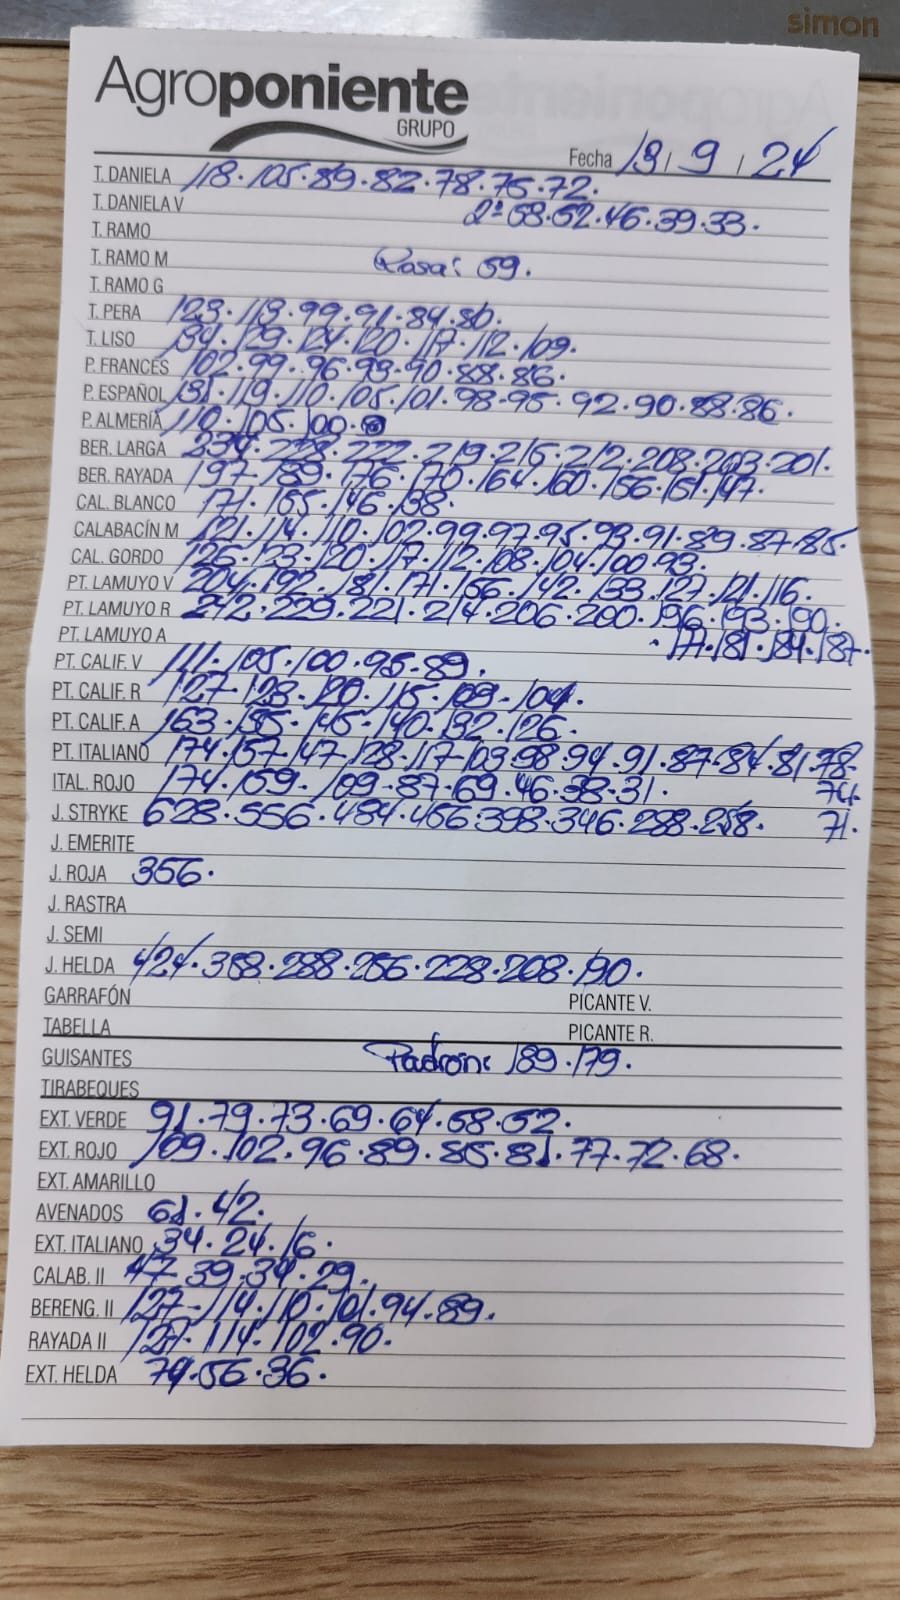 simon
Agroponiente
GRUPO
Fecha 13 / 9 / 24
T. DANELA 118.105.89.82.78.75.72.
T. DANIELA V 2ª 58.52.46.39.33.
T. RAMO
T. RAMO M Rosa: 59.
T. RAMO G
T. PERA 123.113.99.91.84.80.
T. LISO 134.129.124.120.117.112.109.
P. FRANCÉS 102.99.96.93.90.88.86.
P. ESPAÑOL 131.119.110.105.101.98.95.92.90.88.86.
P. ALMERÍA 110.105.100.
BER. LARGA 234.228.222.219.215.212.208.203.201.
BER. RAYADA 197.189.176.170.164.160.156.151.147.
CAL. BLANCO 171.155.146.138.
CALABACÍN M 121.114.110.102.99.97.95.93.91.89.87.85.
CAL. GORDO 126.123.120.117.112.108.104.100.93.
PT. LAMUYO V 204.192.181.171.156.142.133.127.121.116.
PT. LAMUYO R 242.229.221.214.206.200.196.193.190.
PT. LAMUYO A .177.181.184.187.
PT. CALIF. V 111.105.100.95.89.
PT. CALIF. R 127.123.120.115.109.104.
PT. CALIF. A 163.155.145.140.132.126.
PT. ITALIANO 174.157.147.128.117.103.98.94.91.87.84.81.78.
ITAL. ROJO 174.159.109.87.69.46.38.31. 74.
J. STRYKE 628.556.484.456.398.346.288.258. 71.
J. EMERITE
J. ROJA 356.
J. RASTRA
J. SEMI
J. HELDA 424.358.288.256.228.208.190.
GARRAFÓN PICANTE V.
TABELLA PICANTE R.
GUISANTES Padrón: 189.179.
TIRABEQUES
EXT. VERDE 91.79.73.69.64.58.52.
EXT. ROJO 109.102.96.89.85.81.77.72.68.
EXT. AMARILLO
AVENADOS 61.42.
EXT. ITALIANO 34.24.16.
CALAB. II 47.39.34.29.
BERENG. II 127.114.110.101.94.89.
RAYADA II 127.114.102.90.
EXT. HELDA 74.56.36.